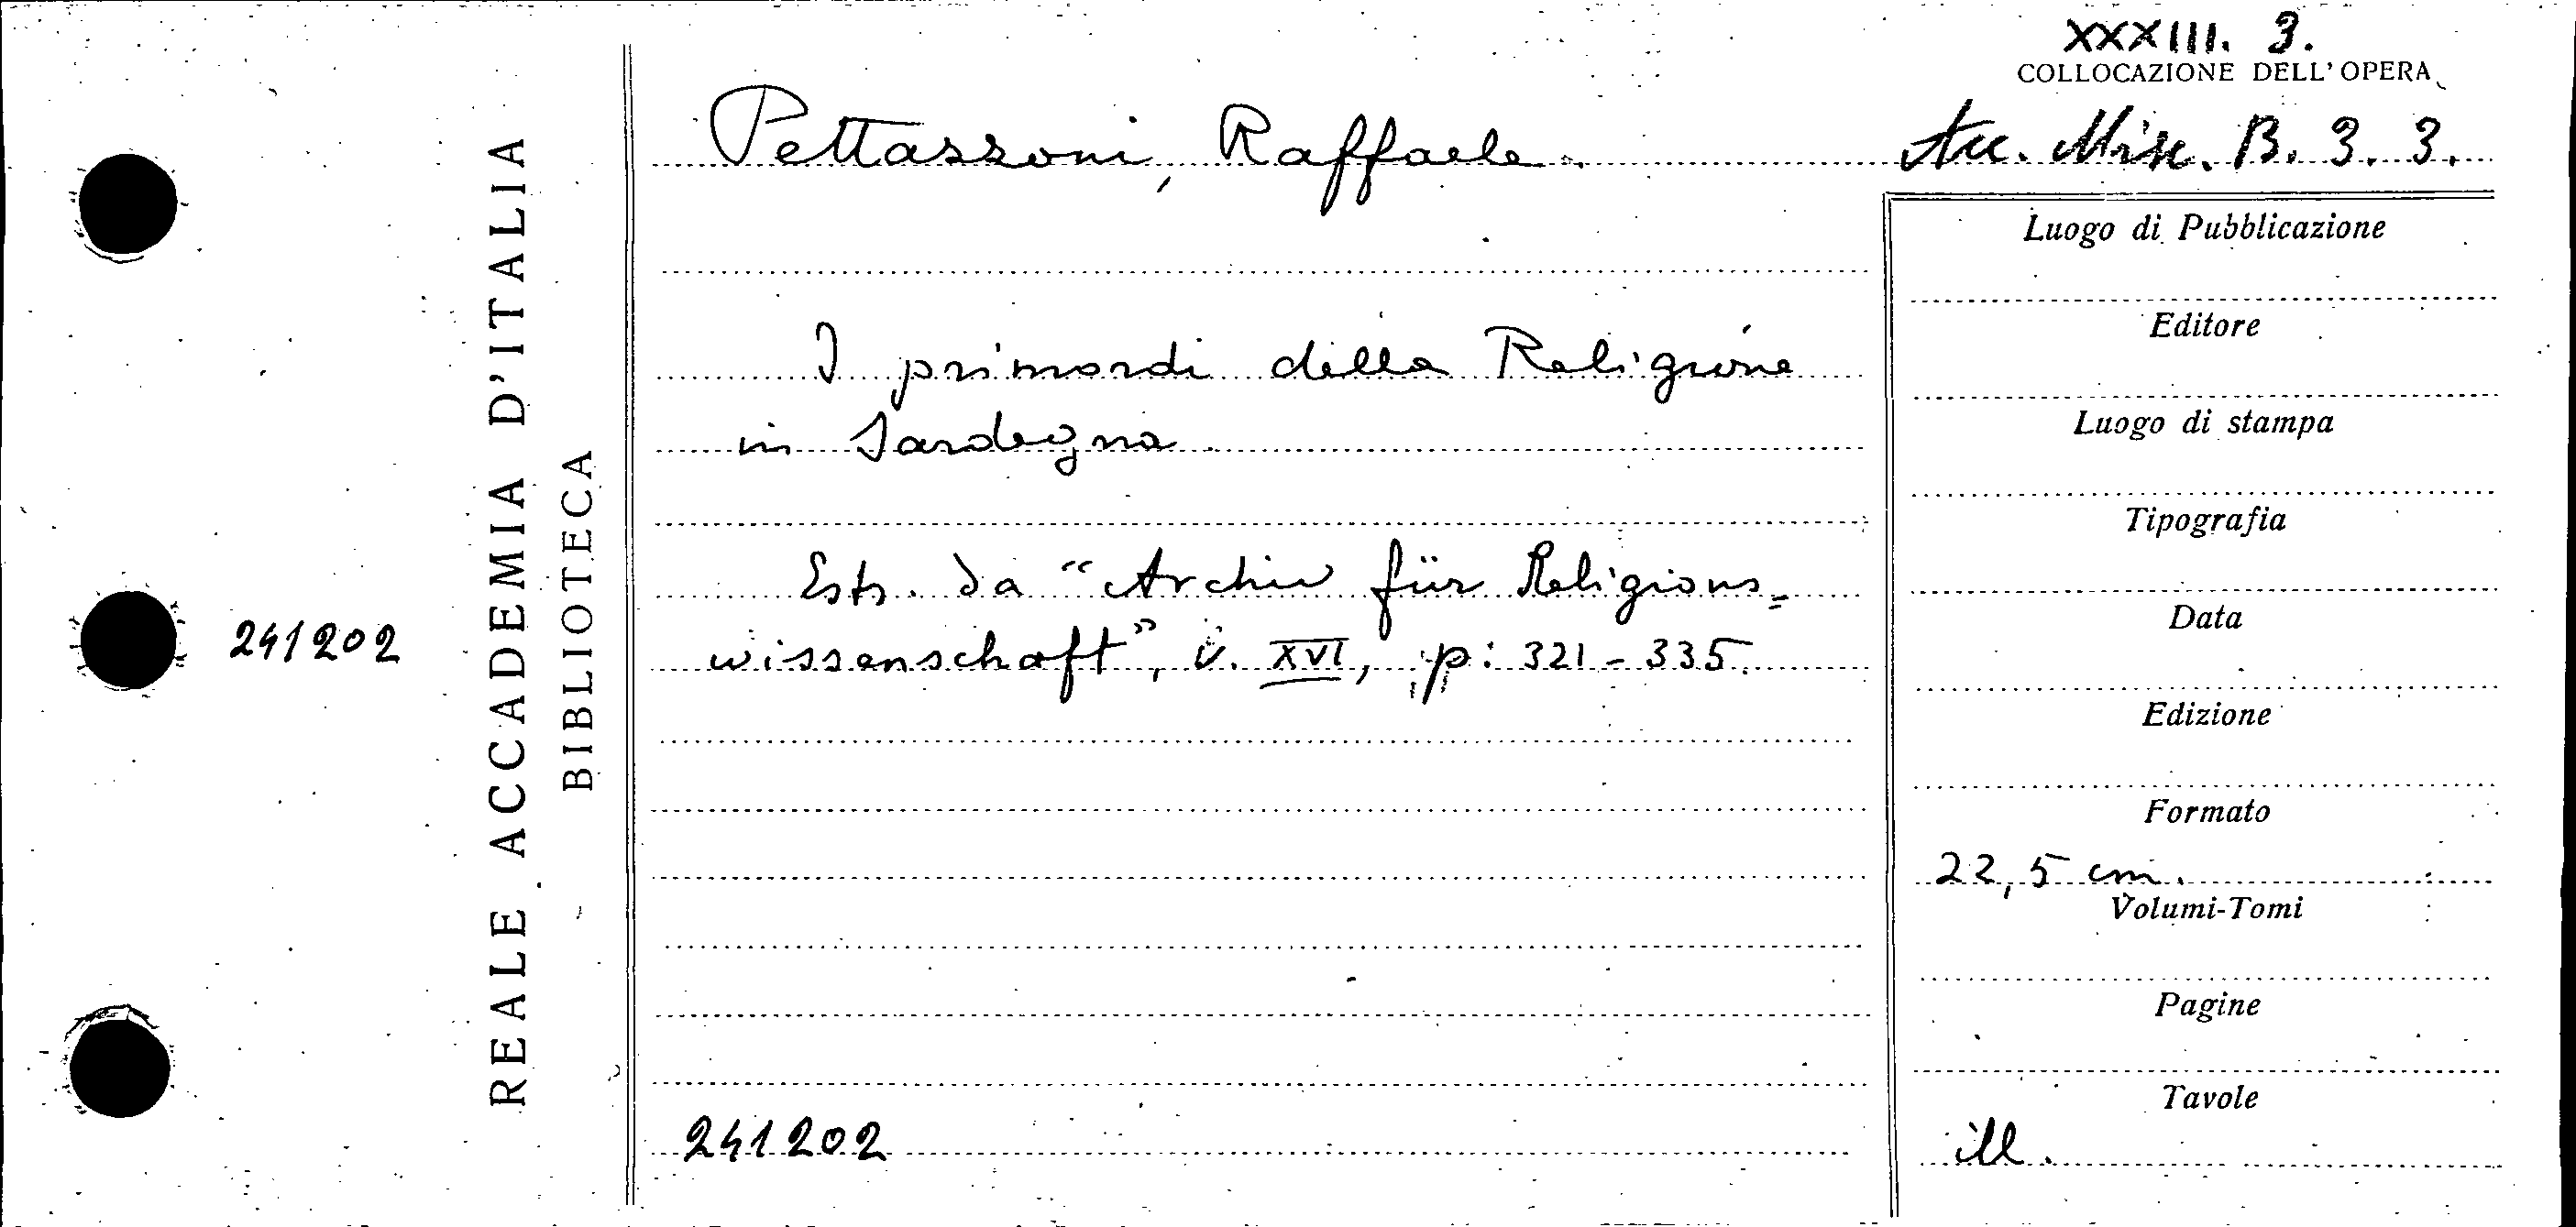 XXXIII. 3.
COLLOCAZIONE DELL'OPERA
Acc. Misc. B. 3. 3.
REALE ACCADEMIA D'ITALIA
BIBLIOTECA
241202
Pettazzoni, Raffaele.
I primordi della Religione
in Sardegna.
Estr. da "Archiv für Religions=
wissenschaft", v. XVI, p: 321-335.
241202
Luogo di Pubblicazione
Editore
Luogo di stampa
Tipografia
Data
Edizione
Formato
22,5 cm.
Volumi-Tomi
Pagine
Tavole
ill.